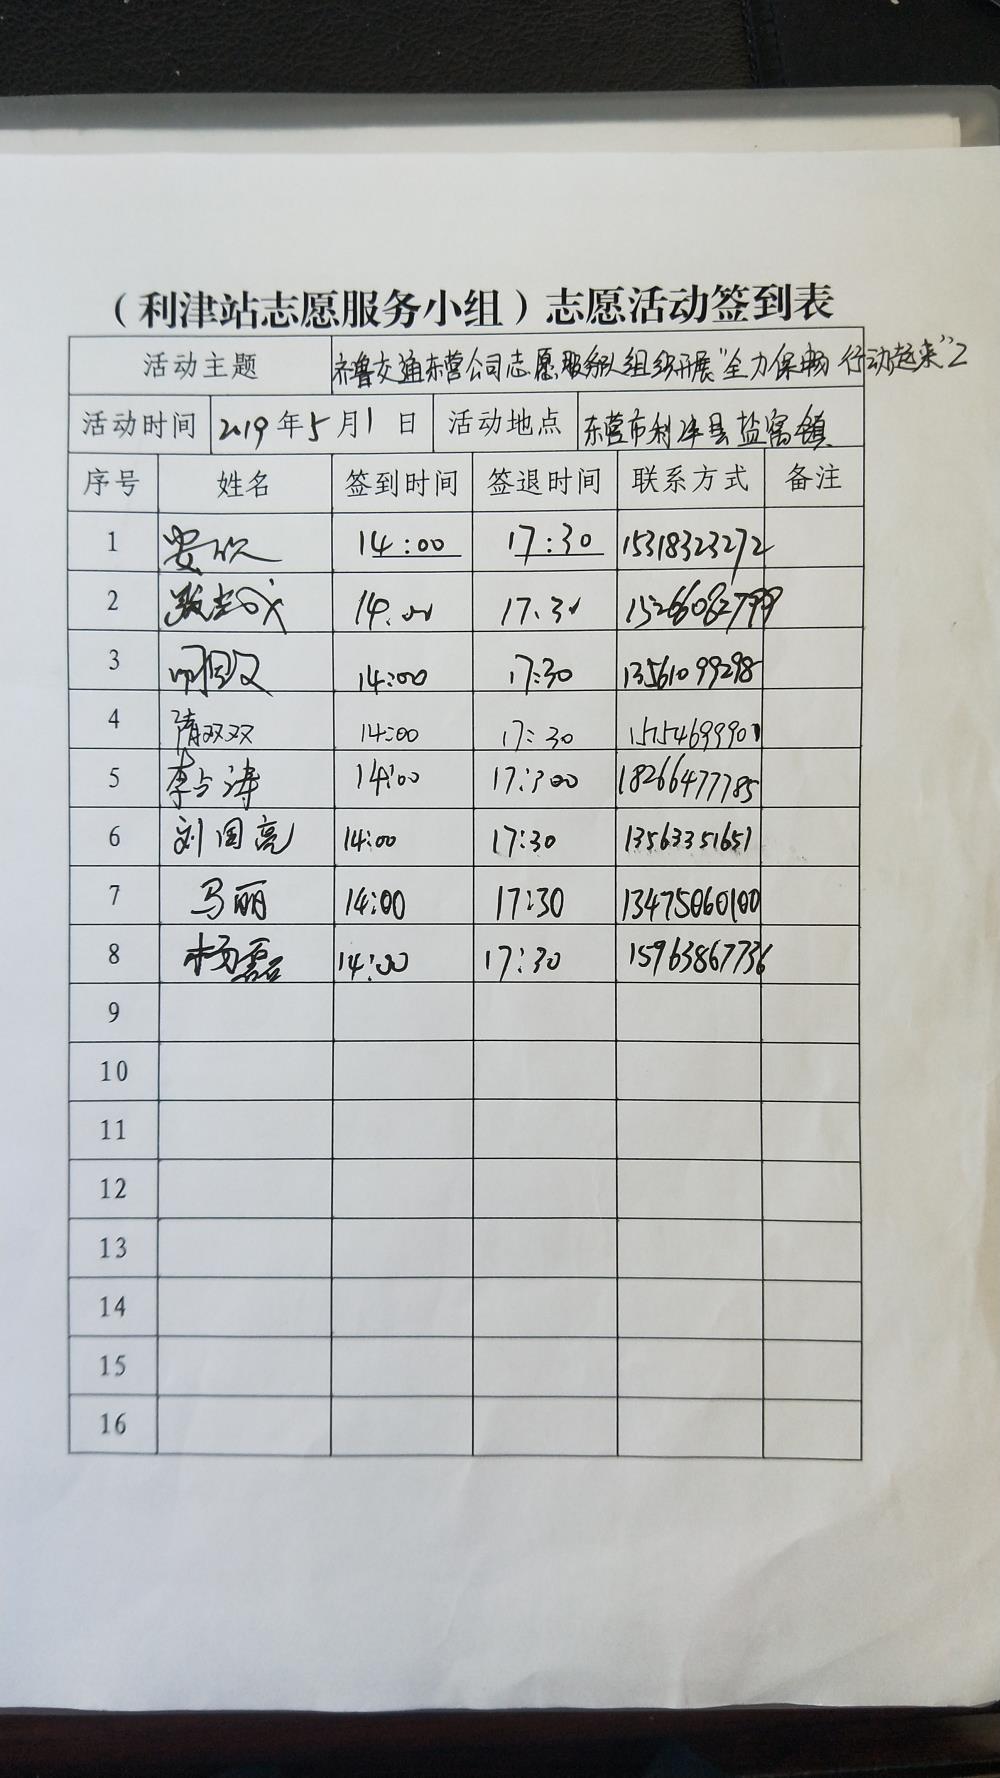 （利津站志愿服务小组）志愿活动签到表
活动主题 齐鲁交通东营公司志愿服务队组织开展“全力保畅 行动起来”2
活动时间 2019年5月1日 活动地点 东营市利津县盐窝镇
序号 姓名 签到时间 签退时间 联系方式 备注
1 14:00 17:30 15318323272
2 14:00 17:30 15266082799
3 14:00 17:30 13561099298
4 隋双双 14:00 17:30 15154699901
5 李占涛 14:00 17:300 18266477785
6 刘国亮 14:00 17:30 13563351651
7 马丽 14:00 17:30 13475060100
8 杨磊 14:00 17:30 15963867736
9
10
11
12
13
14
15
16